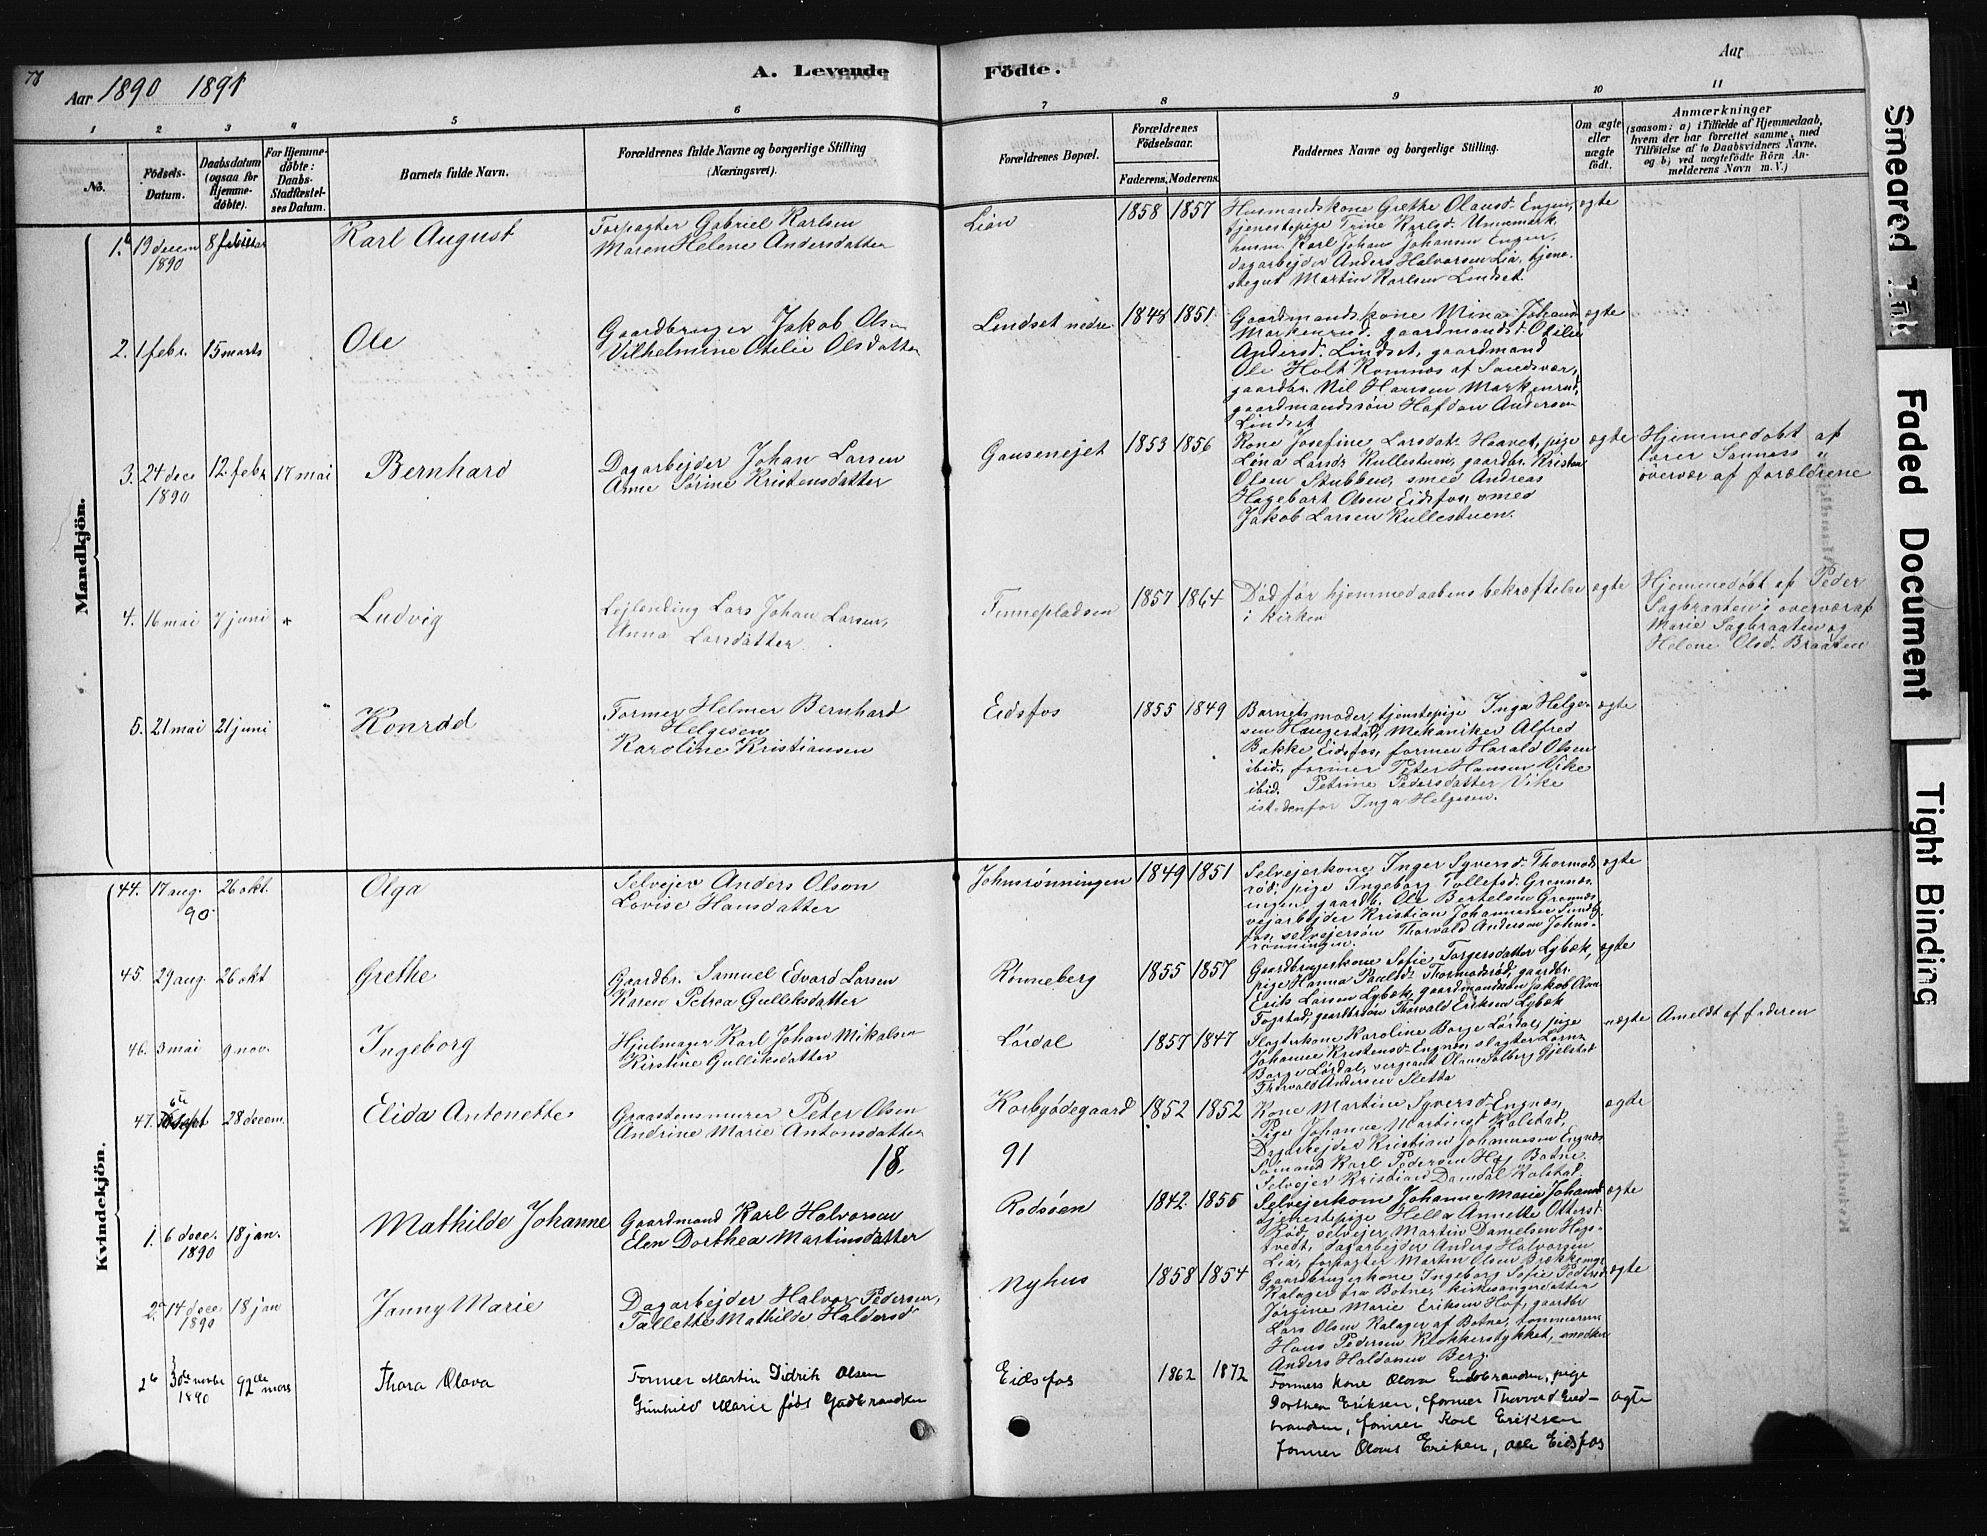 78
Aar 1890 1891
A. Levende
Födte.
Aar
1 2 3 4 5 6 7 8 9 10 11
No.
Födsels-Datum.
Daabsdatum (ogsaa for Hjemme-döbte).
For Hjemme-döbte: Daabs-Stadfæstel-ses Datum.
Barnets fulde Navn.
Forældrenes fulde Navne og borgerlige Stilling (Næringsvei).
Forældrenes Bopæl.
Forældrenes Födselsaar.
Faderens. Moderens.
Faddernes Navne og borgerlige Stilling.
Om ægte eller uægte födt.
Anmærkninger
(saasom: a) i Tilfælde af Hjemmedaab, hvem der har forrettet samme, med Tilföielse af to Daabsvidners Navne, og b) ved uægtefödte Börn An-melderens Navn m. V.)
Mandkjön.
1. 19 decem 1890 8 februar Karl August
Forpagter Gabriel Karlsen
Maren Helene Andersdatter
Lian 1858 1857
Husmandskone Grethe Olausd. Engen, ægte
tjenestepige Trine Karlsd. Unnemark
husm. Karl Johan Johansen Engen,
dagarbejder Anders Halvorsen Lia, tjene-
stegut Martin Karlsen Lindset.
2. 1 febr. 15 marts Ole
Gaardbruger Jakob Olsen
Vilhelmine Otilie Olsdatter
Lindset nedre 1848 1851
Gaardmandskone Mina Johansd ægte
Markenrud, gaardmandsd. Otilie
Andersd. Lindset, gaardmand
Ole Holt Komnæs af Sandsvær,
gaardbr. Nil Hansen Markenrud,
gaardmandssøn Hafdan Andersen
Lindset
3. 24 dec 1890 12. febr 17 mai Bernhard
Dagarbejder Johan Larsen
Anne Sørine Kristensdatter
Gausenejet 1853 1856
Kone Josefine Larsdat. Haavet, pige ægte
Lina Larsd. Kullestuen, gaardbr. Kristen
Olsen Stubben, smed Andreas
Hagebart Olsen Eidsfos, smed
Jakob Larsen Kullestuen.
Hjemmedøbt af
lærer Sanness i
overvær af forældrene
4. 16 mai 7 juni Ludvig
Lejlending Lars Johan Larsen,
Anna Larsdatter
Finnepladsen 1857 1864
Død før hjemmedaabens bekræftelse ægte
i kirken
Hjemmedøbt af Peder
Sagbraaten i overvær af
Marie Sagbraaten og
Helene Olsd. Braaten
5. 21 mai 21 juni Konrad
Former Helmer Bernhard
Helgesen
Karoline Kristiansen
Eidsfos 1855 1849
Barnets moder, tjenstepige Inga Helge- ægte
sen Haugestad, Mekaniker Alfred
Bakke Eidsfos, former Harald Olsen
ibid., former Peter Hansen Vike
ibid. Petrine Pedersdatter Vike
istedenfor Inga Helgesen.
Kvindekjön.
44. 17 aug. 90 26 okt. Olga
Selvejer Anders Olson
Lovise Hansdatter
Johnsrønningen 1849 1851
Selvejerkone Inger Syversd. Thormods- ægte
rød, pige Ingeborg Tollefsd. Grennes-
ingen, gaardb. Ole Bertelsen Grennes
vejarbejder Kristian Johannesen Sundb.
fos, selvejersøn Thorvald Andersen Johns-
rønningen.
45. 29 aug. 26 okt Grethe
Gaardbr. Samuel Edvard Larsen
Karen Petrea Gulliksdatter
Rønneberg 1855 1857
Gaardbrugerkone Sofie Torgersdatter Lybæk, ægte
pige Hanna Paulsd. Thormodsrød, gaardbr.
Erik Larsen Lybæk, gaardmandssøn Jakob Ason
Fogstad, gaardbrsøn Thorvald Eriksen Lybæk
46. 3 mai 9 nov. Ingeborg
Hjulmager Karl Johan Mikalsen
Kirstine Gulliksdatter
Lørdal 1857 1847
Slagterkone Karoline Borge Lørdal, pige uægte
Johanne Kristensd. Engnes, slagter Lorns
Borge Lørdal, sergeant Olaus Solberg Gjelstad
Thorvald Andersen Sletta
Ameldt af faderen
47. 6te Sept 28 decem. Elida Antonette
Graastensmurer Peter Olsen
Andrine Marie Antonsdatter
Korbyødegaard 1852 1852
Kone Martine Syversd. Engnæs, ægte
Pige Johanne Martinsd. Kolstad,
Dagarbejder Kristian Johannesen Engnæs
Sømand Karl Pedersen Haj Botne
Selvejer Kristian Damdal Kolstad.
18 91
1. 6 dece. 1890 18 jan. Mathilde Johanne
Gaardmand Karl Halvorsen
Elen Dorthea Martinsdatter
Rødsøen 1842 1856
Selvejerkone Johanne Marie Johansd ægte
tjenestepige Hella Annette Ottersd.
Rød, selvejer Martin Danielsen Hogs-
tvedt, dagarbejder Anders Halvorsen
Lia, forpagter Martin Olsen Bækkeng.
2. 14 dece. 1890 18 jan Janny Marie
Dagarbejder Halvor Pedersen,
Tallette Mathilde Haldorsd
Nyhus 1858 1854
Gaardbrugerkone Ingeborg Sofie Pedersd ægte
Kalager fra Botne, kirkesangerdatter
Jørgine Marie Eriksen Hof, gaardbr
Lars Olsen Kalager af Botne, tømmerm.
Hans Pedersen Klokkerstykket, snedker
Anders Haldorsen Berg.
2b 30de novbr 1890 92de mars Thora Olava
Former Martin Didrik Olsen
Gunhild Marie født Gudbrandsen
Eidsfos 1862 1872
Formers kone Olava Gudbrandsen, pige
Dorthea Eriksen, former Thorvald Gud- ægte
brandsen, former Karl Eriksen
former Olaves Eriksen, alle Eidsfos
Smeared Ink
Faded Document
Tight Binding